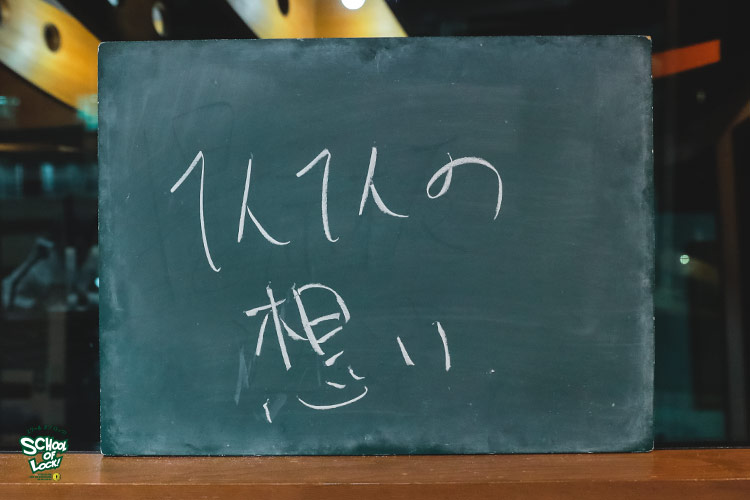 1人1人の
想い
SCHOOL
OF
LOCK!